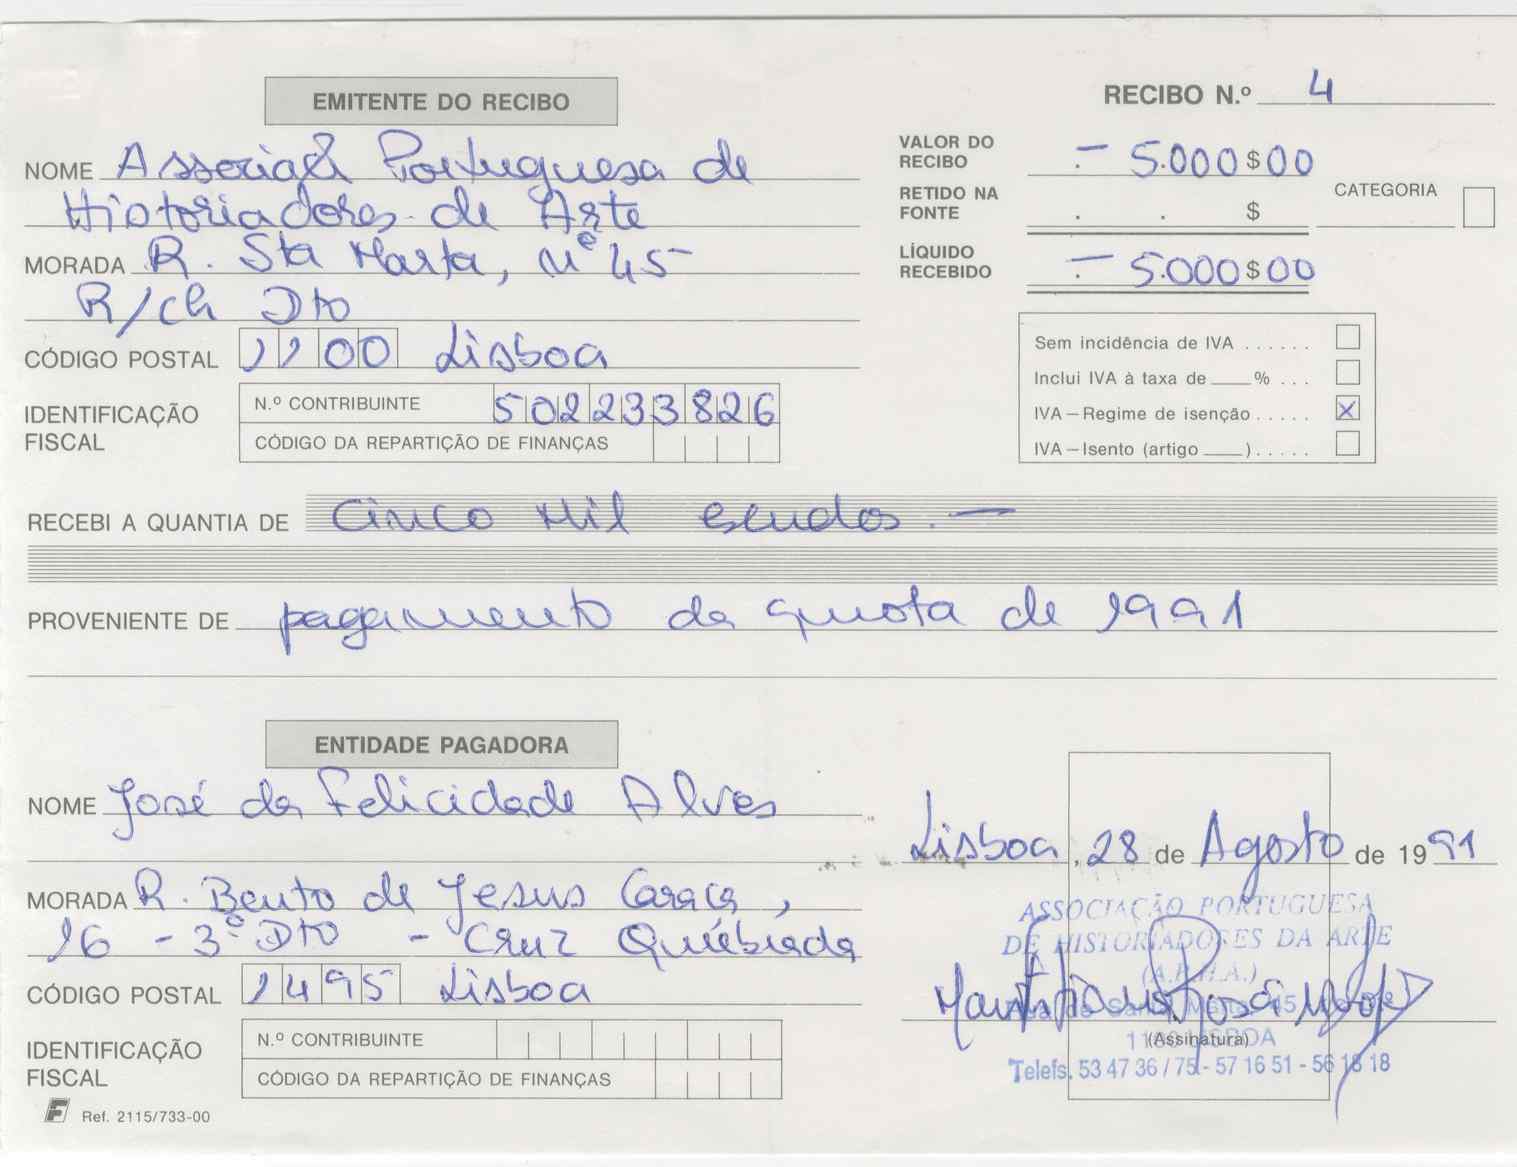 EMITENTE DO RECIBO
RECIBO N.º 4
NOME Associaçã Portuguesa de
Historiadores de Arte
MORADA R. Sta Marta, nº 45
R/ch Dto
CÓDIGO POSTAL 1100 Lisboa
IDENTIFICAÇÃO FISCAL
N.º CONTRIBUINTE 502233826
CÓDIGO DA REPARTIÇÃO DE FINANÇAS
VALOR DO RECIBO - 5.000$00
RETIDO NA FONTE . . $
CATEGORIA
LÍQUIDO RECEBIDO - 5.000$00
Sem incidência de IVA ......
Inclui IVA à taxa de ___% ...
IVA – Regime de isenção ..... X
IVA – Isento (artigo ___) .....
RECEBI A QUANTIA DE Cinco Mil escudos. —
PROVENIENTE DE pagamento da quota de 1991
ENTIDADE PAGADORA
NOME José da Felicidade Alves
MORADA R. Bento de Jesus Caraça,
16 - 3º Dto - Cruz Quebrada
CÓDIGO POSTAL 1495 Lisboa
IDENTIFICAÇÃO FISCAL
N.º CONTRIBUINTE
CÓDIGO DA REPARTIÇÃO DE FINANÇAS
F Ref. 2115/733-00
Lisboa, 28 de Agosto de 1991
ASSOCIAÇÃO PORTUGUESA
DE HISTORIADORES DA ARTE
(A.P.H.A.)
1100 LISBOA
(Assinatura)
Telefs. 53 47 36 / 75 - 57 16 51 - 56 18 18